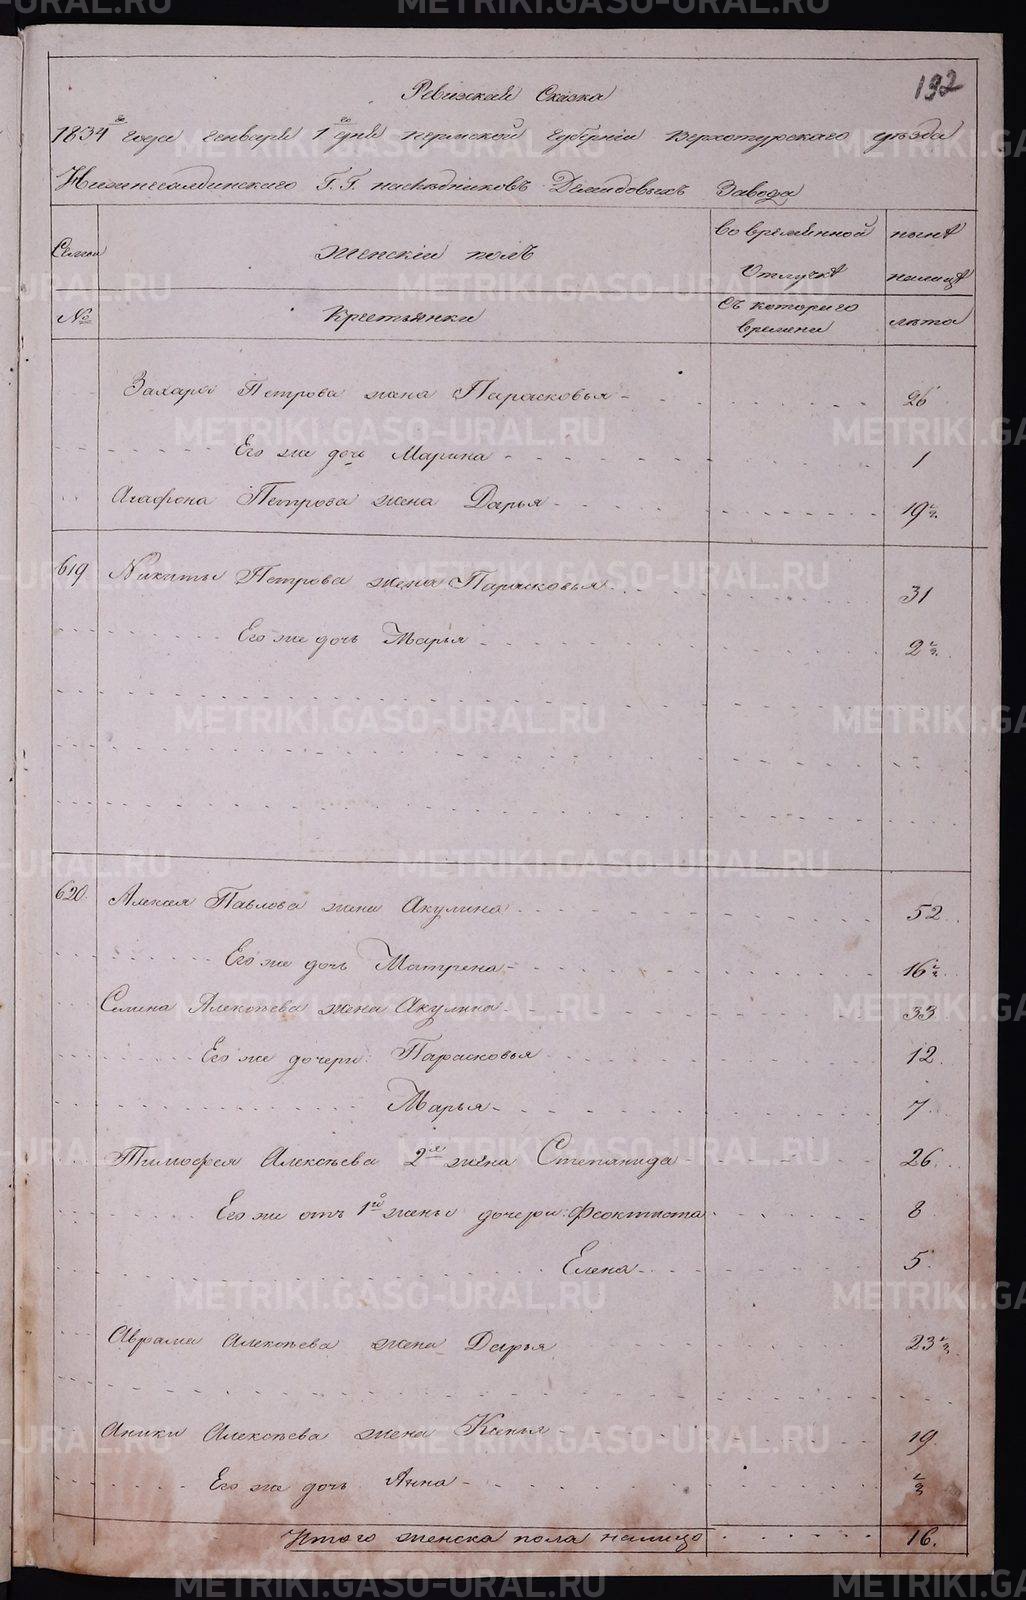 192
Ревижская Сказка
1834го года Генваря 1го дня Пермской Губернiи Верхотурскаго уѣзда
Нижнесалдинскаго Г.Г. наслѣдниковъ Демидовыхъ Завода
Семьи
Женскiй полъ
Во временной Отлучкѣ
нынѣ налицѣ
№
Крестьянки
Съ котораго времени
лѣта
Захара Петрова жена Парасковья 26
Его же дочь Марина 1
Агафона Петрова жена Дарья 19 1/2
619 Никиты Петрова жена Парасковья 31
Его же дочь Марья 2 1/2
620 Алексея Павлова жена Акулина 52
Его же дочь Матрена 16 1/2
Семена Алексѣева жена Акулина 33
Его же дочери: Парасковья 12
Марья 7
Тимофея Алексѣева 2я жена Степанида 26
Его же отъ 1й жены дочери: Феоктиста 8
Елена 5
Аврама Алексѣева жена Дарья 23 1/2
Аники Алексѣева жена Ксенья 19
Его же дочь Анна 1/2
Итого женска пола налицо 16.
METRIKI.GASO-URAL.RU